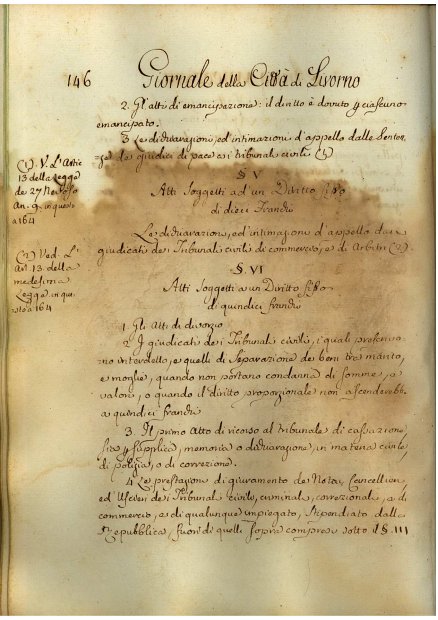 146 Giornale della Città di Livorno
2. Gl'atti di emancipazione: il diritto è dovuto p ciascuno
emancipato.
3. Le dichiarazioni, ed intimazioni d'appello dalle Senten-
ze de giudici di pace ai tribunali civili (1)
(1) V. L'Artic
13 della Legge
de 27
An. 9. in questo
a 164
§ V
Atti Soggetti ad un Diritto fisso
di dieci franchi
Le dichiarazioni, ed intimazioni d'appello dai
giudicati dei Tribunali civili di commercio, e di Arbitri (2)
(2) Ved. L'
Art. 13. della
medesima
Legge in que-
sto a 164
§ VI
Atti Soggetti a un Diritto fisso
di quindici franchi
1. Gli Atti di divorzio
2. I giudicati dei Tribunali civili, i quali
no interdetto, e quelli di Separazione dei beni tra marito,
e moglie, quando non portano condanna di somme, o
valori, o quando il diritto proporzionale non ascenderebb.
a quindici franchi
3. Il primo Atto di ricorso al tribunale di cassazione
sia p supplica, memoria o dichiarazione in materia civile
di polizia, o di correzione.
4. Le prestazioni di giuramento dei Notai, Cancellieri,
ed Uscieri dei Tribunali civile, criminale, correzionale, e di
commercio, e di qualunque impiegato, stipendiato dalla
Repubblica, fuori di quelli sopra compresi sotto il § III